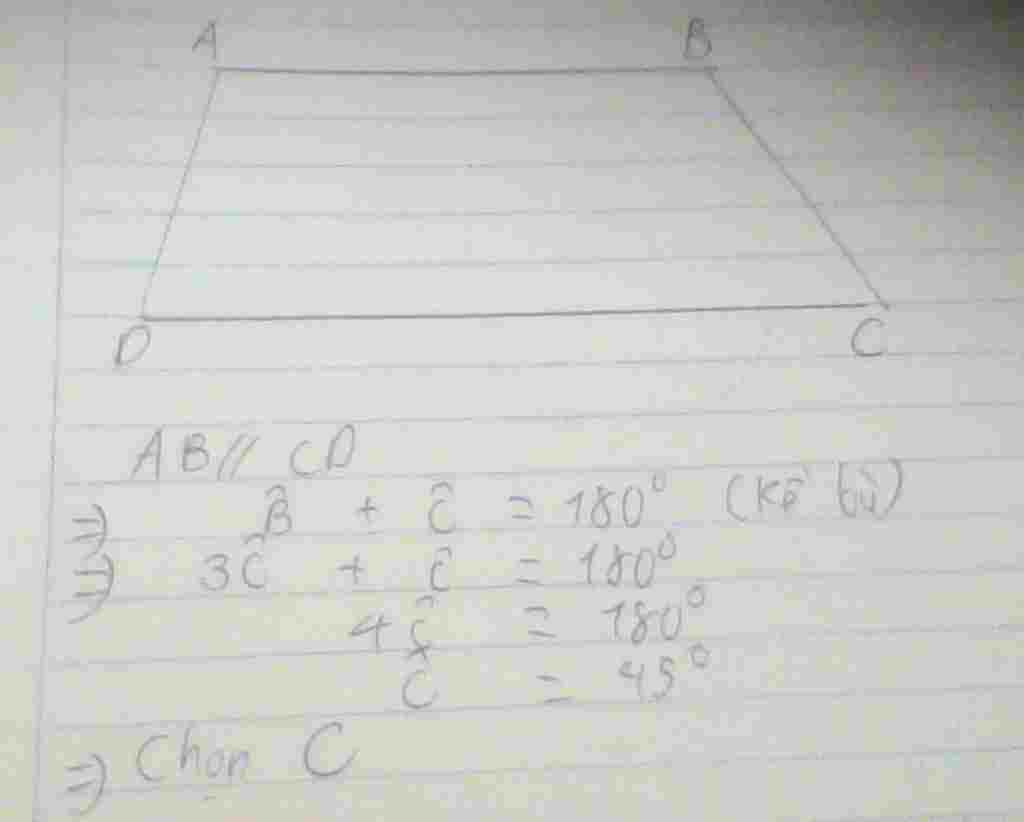 A B
D C
AB // CD
=> B̂ + Ĉ = 180° (kề bù)
=> 3Ĉ + Ĉ = 180°
4Ĉ = 180°
Ĉ = 45°
=> Chọn C